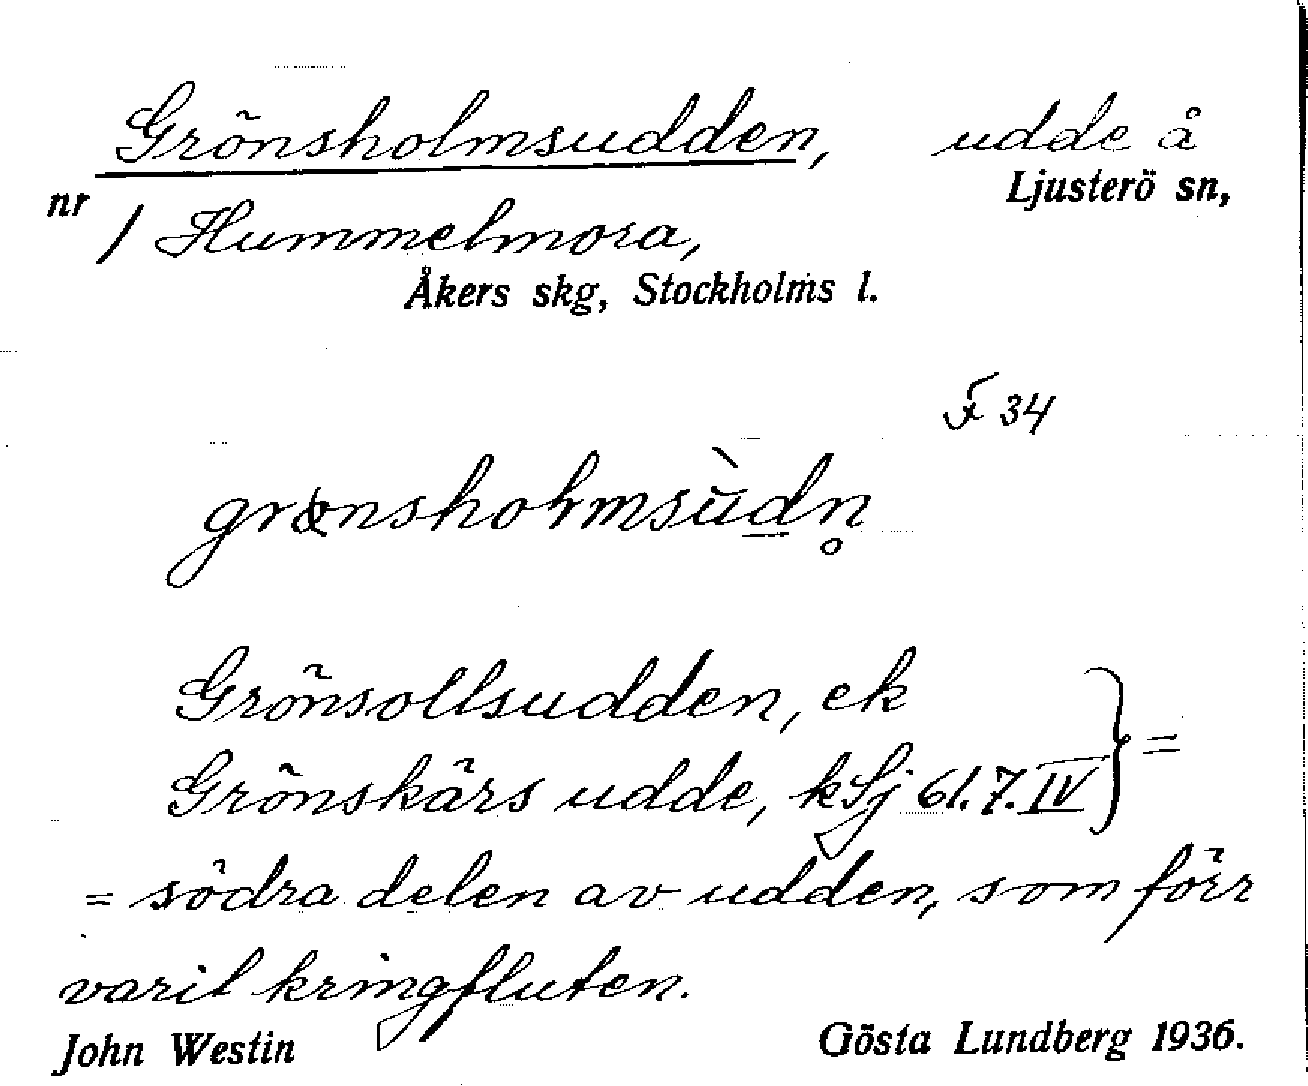 Grönsholmsudden, udde å
Ljusterö sn,
nr / Hummelmora,
Åkers skg, Stockholms l.
F 34
grønsholmsùdn̥
Grönsollsudden, ek
Grönskärs udde, kSj 61.7.IV } =
= södra delen av udden, som förr
varit kringfluten.
John Westin Gösta Lundberg 1936.